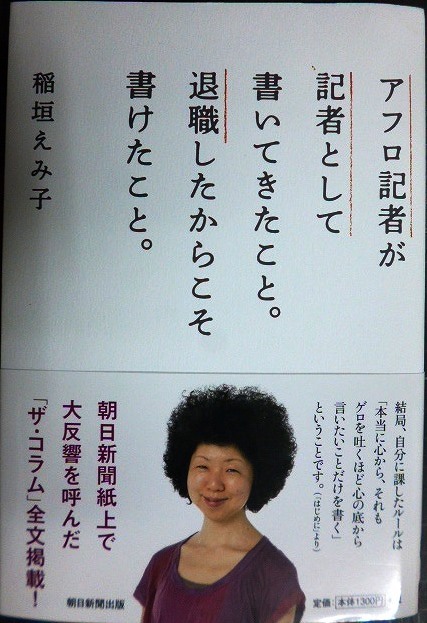 アフロ記者が
記者として
書いてきたこと。
退職したからこそ
書けたこと。
稲垣えみ子
結局、自分に課したルールは
「本当に心から、それも
ゲロを吐くほど心の底から
言いたいことだけを書く」
ということです。(「はじめに」より)
朝日新聞紙上で
大反響を呼んだ
「ザ・コラム」全文掲載!
朝日新聞出版
定価:本体1300円